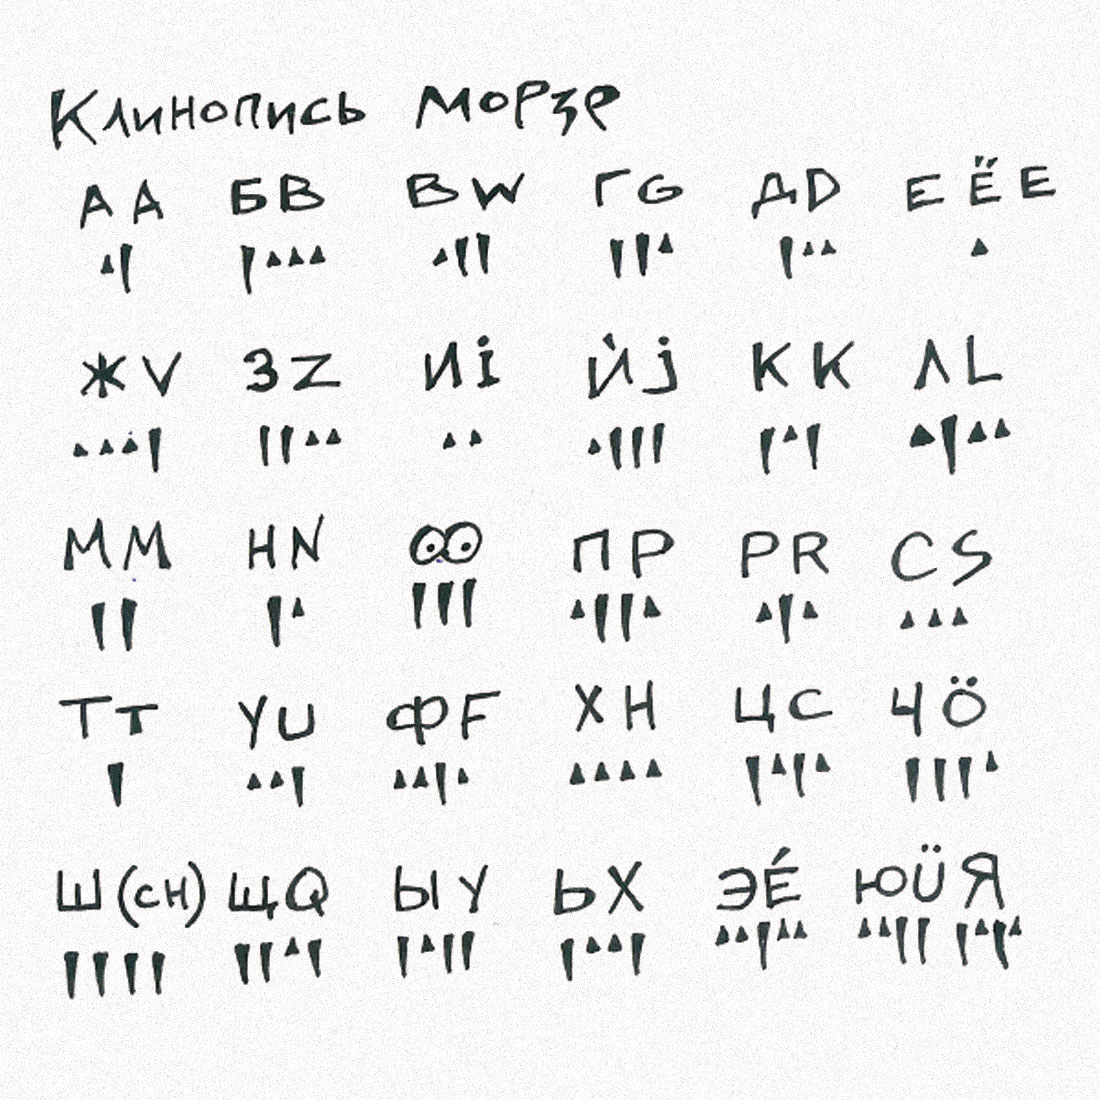 Клинопись Морзе
А A Б B В W Г G Д D Е Ё E
Ж V З Z И i Й j К K Л L
М M Н N О O П P Р R С S
Т T У U Ф F Х H Ц C Ч Ö
Ш (CH) Щ Q Ы Y Ь X Э É Ю Ü Я